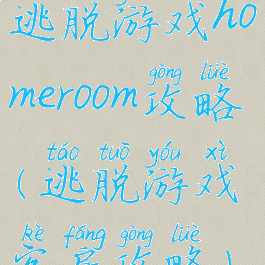 逃脱游戏ho
gōng lüè
meroom攻略
táo tuō yóu xì
(逃脱游戏
kè fáng gōng lüè
客房攻略)